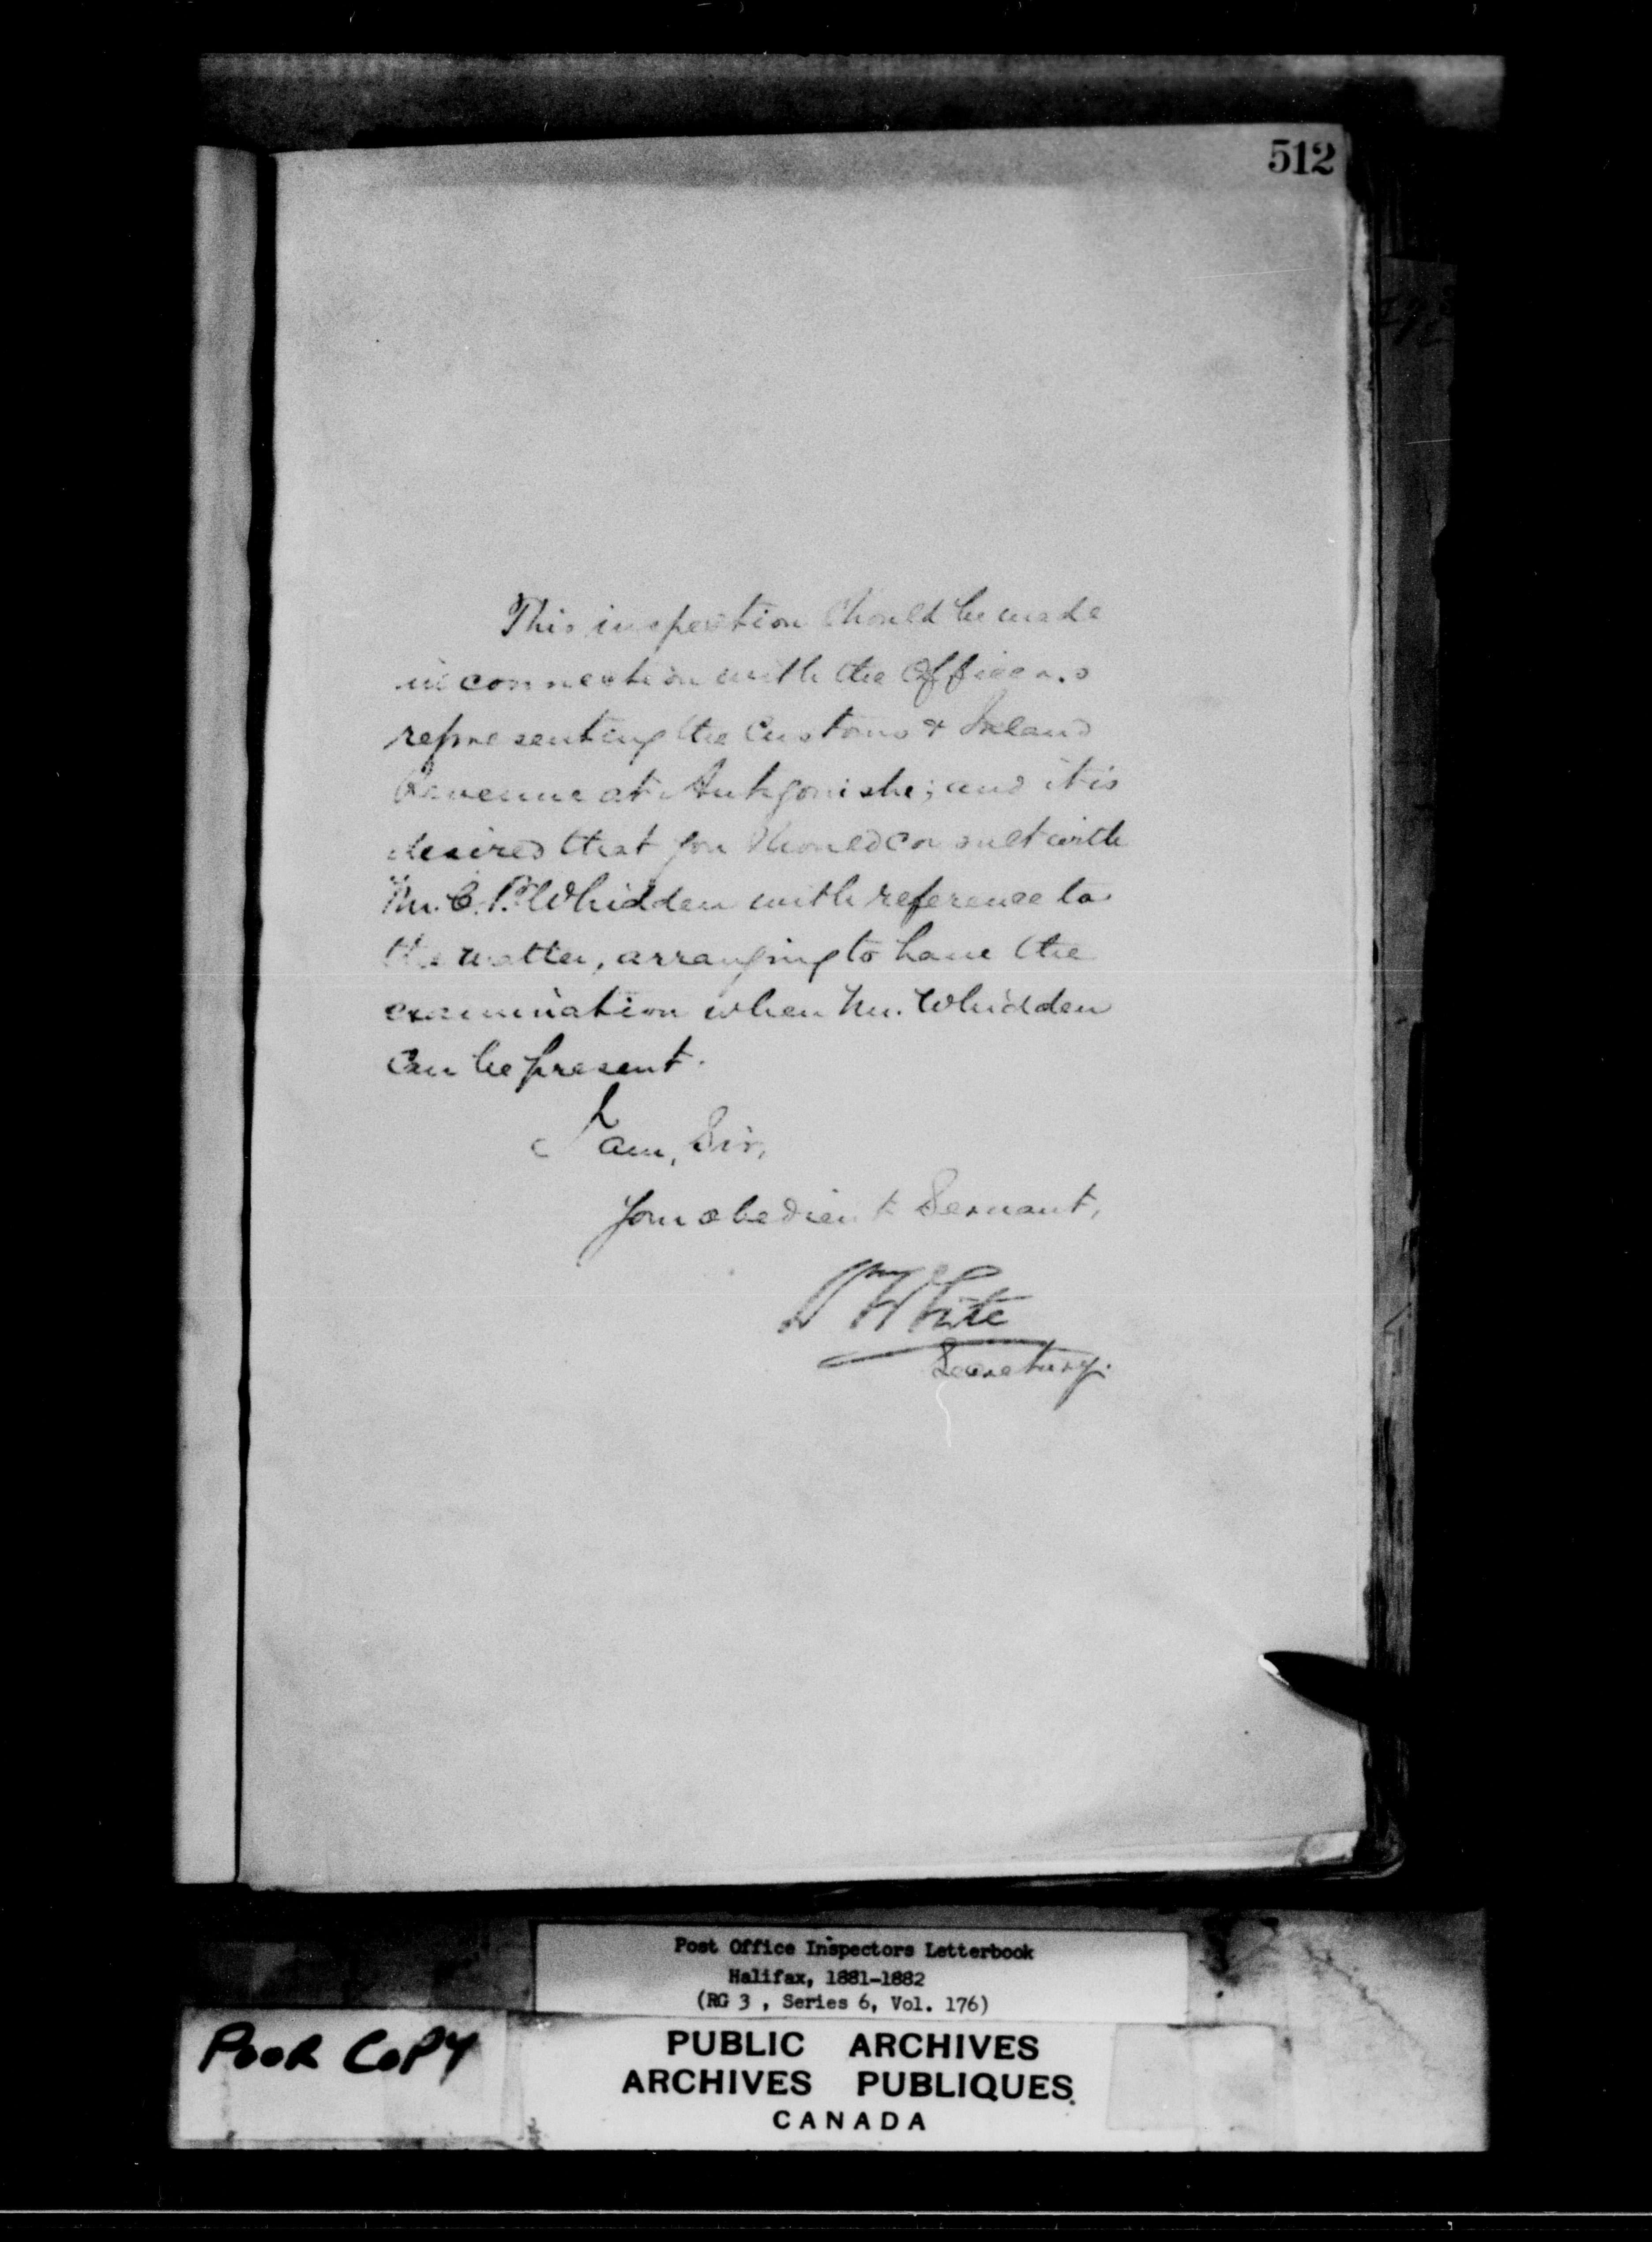 512
This inspection should be made
in connection with the Officers
representing the Customs & Inland
Revenue at Antigonishe; and it is
desired that you should consult with
Mr. C. B. Whidden with reference to
the matter, arranging to have the
examination when Mr. Whidden
can be present.
I am, Sir,
Your obedient Servant,
Wm White
Secretary.
Post Office Inspectors Letterbook
Halifax, 1881-1882
(RG 3 , Series 6, Vol. 176)
POOR COPY
PUBLIC ARCHIVES
ARCHIVES PUBLIQUES
CANADA